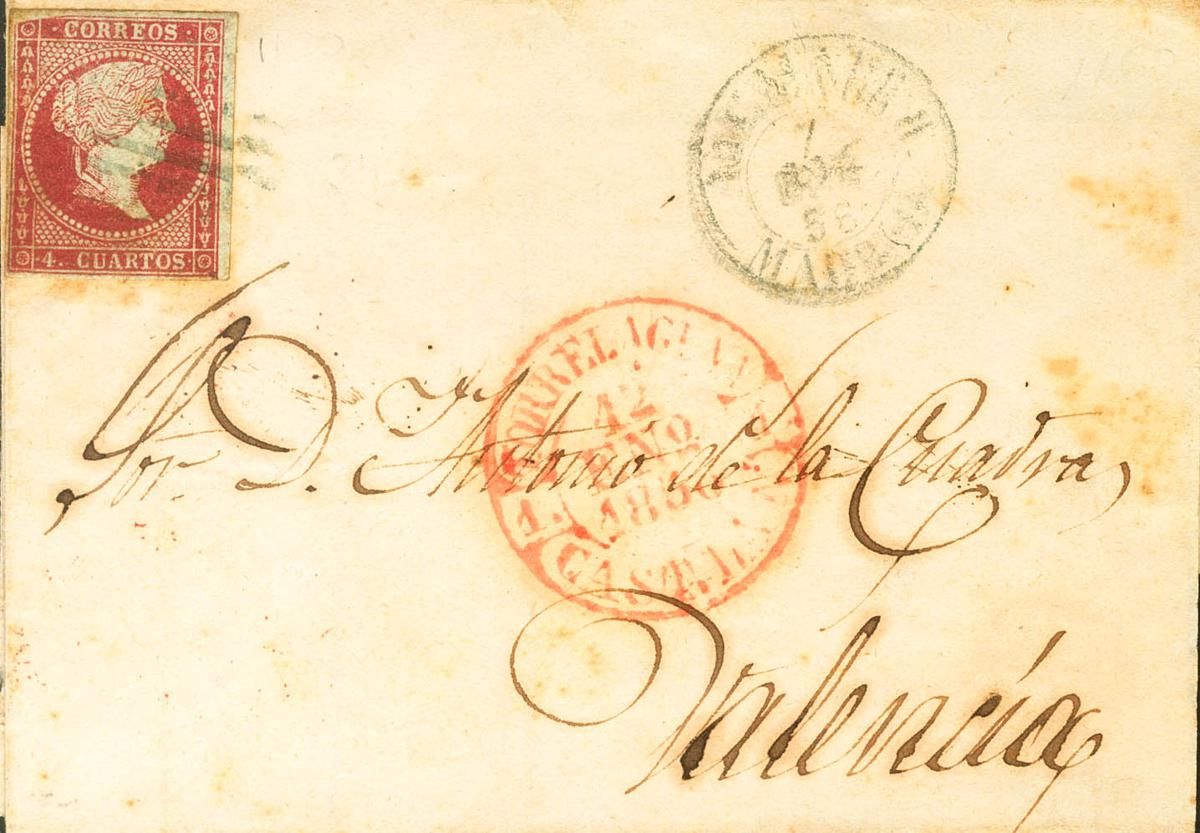 CORREOS
4. CUARTOS
MADRID
TORRELAGUNA
12
ENO
185
CAST. LA N.
Sor. D. Antonio de la Cuadra,
Valencia